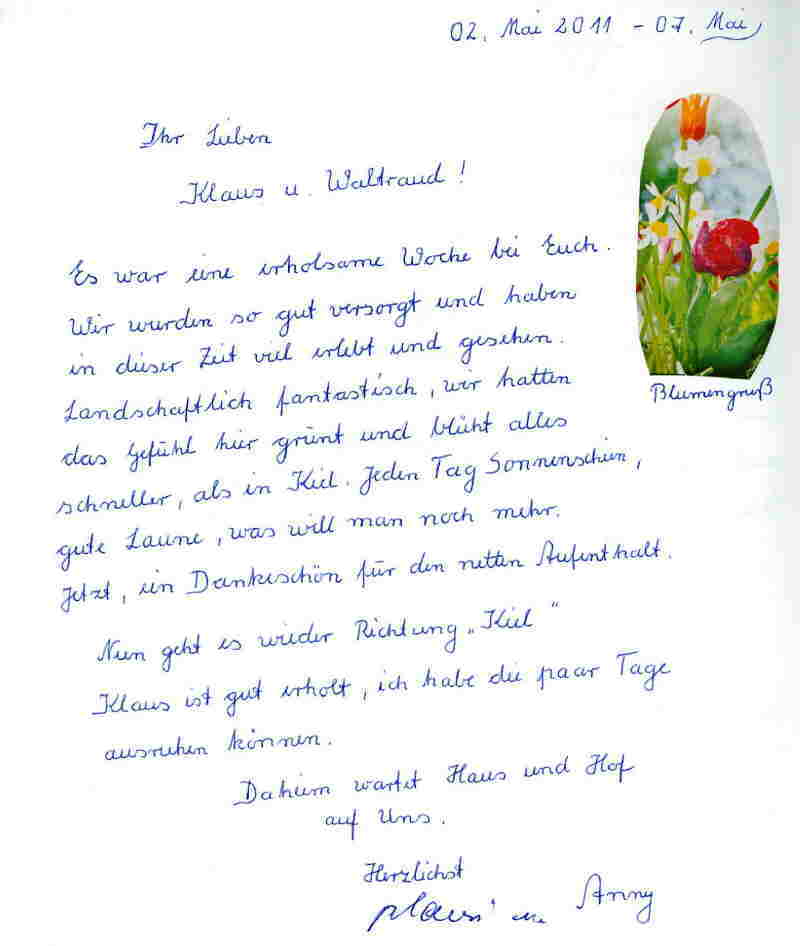 02. Mai 2011 - 07. Mai
Ihr Lieben
Klaus u. Waltraud!
Es war eine erholsame Woche bei Euch.
Wir wurden so gut versorgt und haben
in dieser Zeit viel erlebt und gesehen.
Landschaftlich fantastisch, wir hatten
das Gefühl hier grünt und blüht alles
schneller, als in Kiel. Jeden Tag Sonnenschein,
gute Laune, was will man noch mehr.
Jetzt, ein Dankeschön für den netten Aufenthalt.
Nun geht es wieder Richtung „Kiel“
Klaus ist gut erholt, ich habe die paar Tage
ausruhen können.
Daheim wartet Haus und Hof
auf Uns.
Herzlichst
Klaus un Anny
Blumengruß